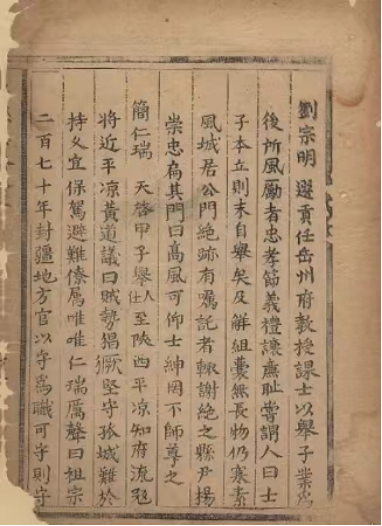 劉宗明 選貢任岳州府教授課士以舉子業為
後所風厲者忠孝節義禮讓廉耻嘗謂人曰士
子本立則末自舉矣及解組囊無長物仍寒素
風城居公門絶跡有囑託者輙謝絶之縣尹揚
崇忠扁其門曰高風可仰士紳罔不師尊之
簡仁瑞 天啓甲子舉人仕至陝西平凉知府流冦
將近平凉黃道議曰賊勢猖獗堅守孤城難於
持久宜保駕避難僚屬唯唯仁瑞厲聲曰祖宗
二百七十年封疆地方官以守為職可守則守